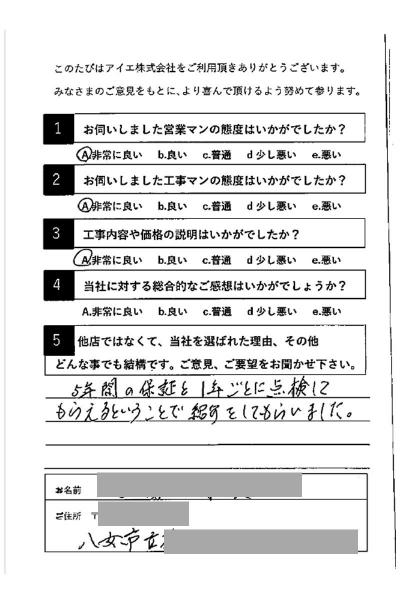 このたびはアイエ株式会社をご利用頂きありがとうございます。
みなさまのご意見をもとに、より喜んで頂けるよう努めて参ります。
1 お伺いしました営業マンの態度はいかがでしたか？
A.非常に良い b.良い c.普通 d 少し悪い e.悪い
2 お伺いしました工事マンの態度はいかがでしたか？
A.非常に良い b.良い c.普通 d 少し悪い e.悪い
3 工事内容や価格の説明はいかがでしたか？
A.非常に良い b.良い c.普通 d 少し悪い e.悪い
4 当社に対する総合的なご感想はいかがでしょうか？
A.非常に良い b.良い c.普通 d 少し悪い e.悪い
5 他店ではなくて、当社を選ばれた理由、その他
どんな事でも結構です。ご意見、ご要望をお聞かせ下さい。
5年間の保証と1年ごとに点検して
もらえるということで紹介をしてもらいました。
お名前
ご住所 〒
八女市立